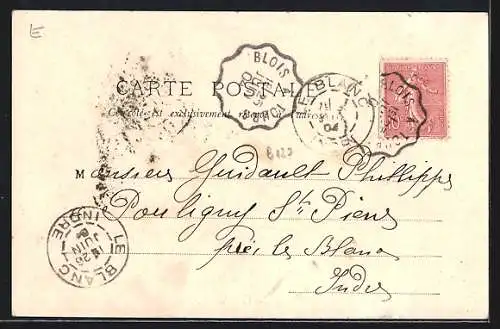 E
BLOIS
CARTE POSTALE
LE BLANC
BLOIS A
Ce côté est exclusivement réservé à l'adresse
Monsieur Guidault Philippe
Pouligny St Pierre
près le Blanc
Indre
LE BLANC
26
JUIN
INDRE